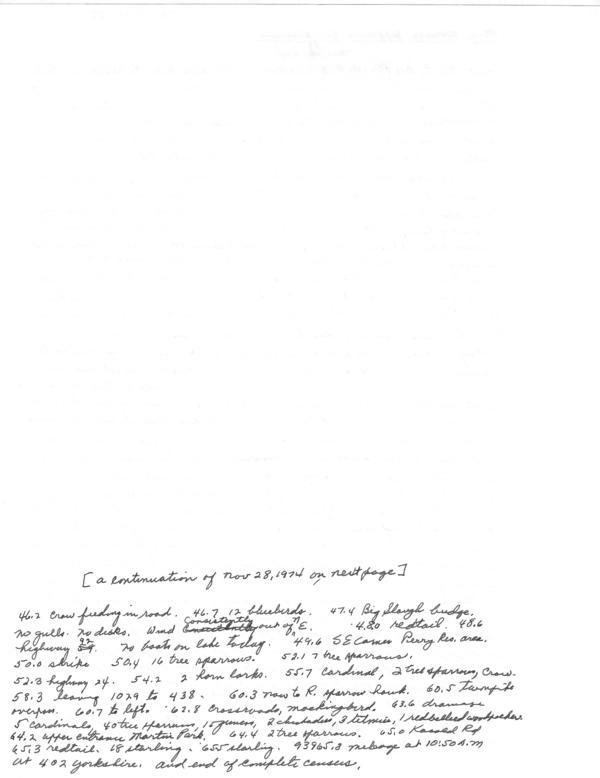 [a continuation of Nov 28, 1974 on next page]
46.2 Crow feeding in road. 46.7 12 bluebirds. 47.4 Big Slough bridge.
no gulls. No ducks. Wind Consistently out of E. 48.0 redtail. 48.6
highway 92. No boats on lake today. 49.6 SE Corner Perry Res. area.
50.0 shrike 50.4 16 tree sparrows. 52.1 7 tree sparrows.
52.3 highway 24. 54.2 2 horn larks. 55.7 cardinal, 2 tree sparrows, Crow.
58.3 leaving 1029 to 438. 60.3 now to R. sparrow hawk. 60.5 turnpike
overpass. 60.7 to left. 62.8 Crossroads, mockingbird. 63.6 drainage
5 cardinals, 40 tree sparrows, 15 juncos, 2 chickadees, 3 titmice, 1 redbellied woodpecker
64.2 upper entrance Martin Park. 64.4 2 tree sparrows. 65.0 Kasold Rd
65.3 redtail. 18 starling. 655 starling. 93965.8 mileage at 10:50 A.M
at 402 Yorkshire. and end of complete census.